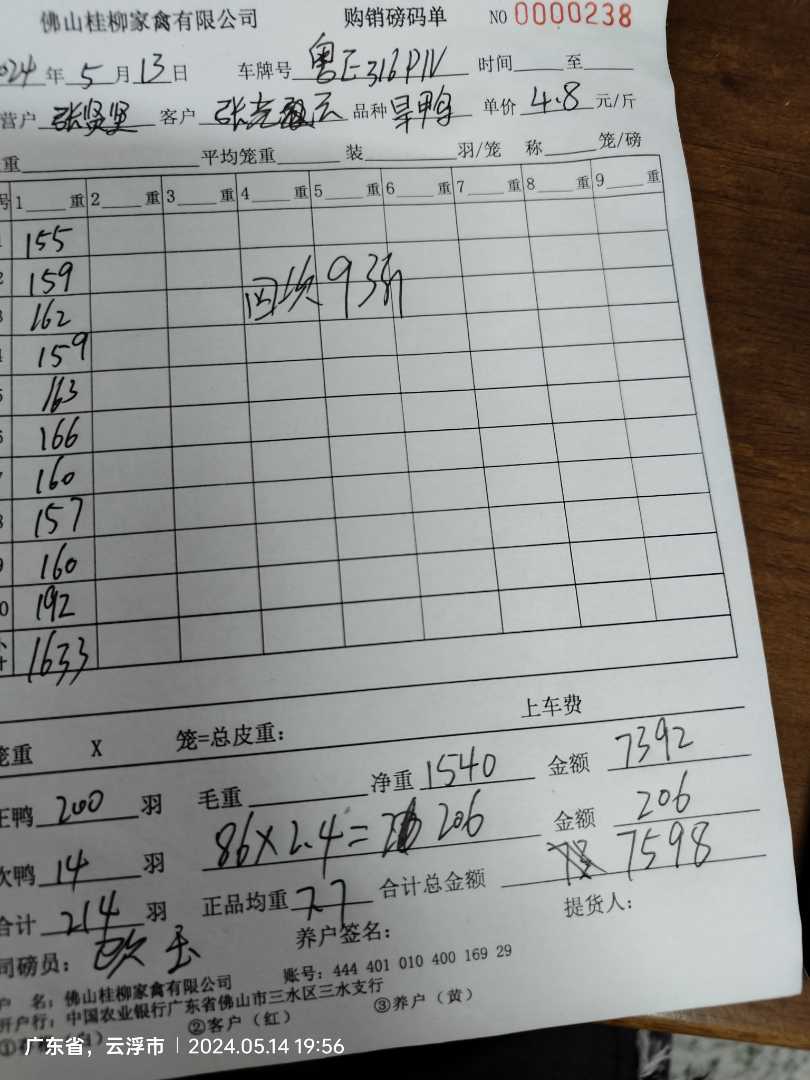 佛山桂柳家禽有限公司 购销磅码单 NO 0000238
2024年5月13日 车牌号 粤E316P1V 时间 至
营户 张贤贤 客户 品种 旱鸭 单价 4.8 元/斤
重 平均笼重 装 羽/笼 称 笼/磅
号 1 重 2 重 3 重 4 重 5 重 6 重 7 重 8 重 9 重
155
2 159
3 162
159
5 163
6 166
160
8 157
9 160
0 192
1633
回次93斤
笼重 X 笼=总皮重: 上车费
正鸭 200 羽 毛重 净重 1540 金额 7392
次鸭 14 羽 86×2.4= 206 金额 206
合计 214 羽 正品均重 7.7 合计总金额 7598
司磅员: 养户签名: 提货人:
户 名: 佛山桂柳家禽有限公司 账号: 444 401 010 400 169 29
开户行: 中国农业银行广东省佛山市三水区三水支行
① ②客户(红) ③养户(黄)
广东省，云浮市 | 2024.05.14 19:56